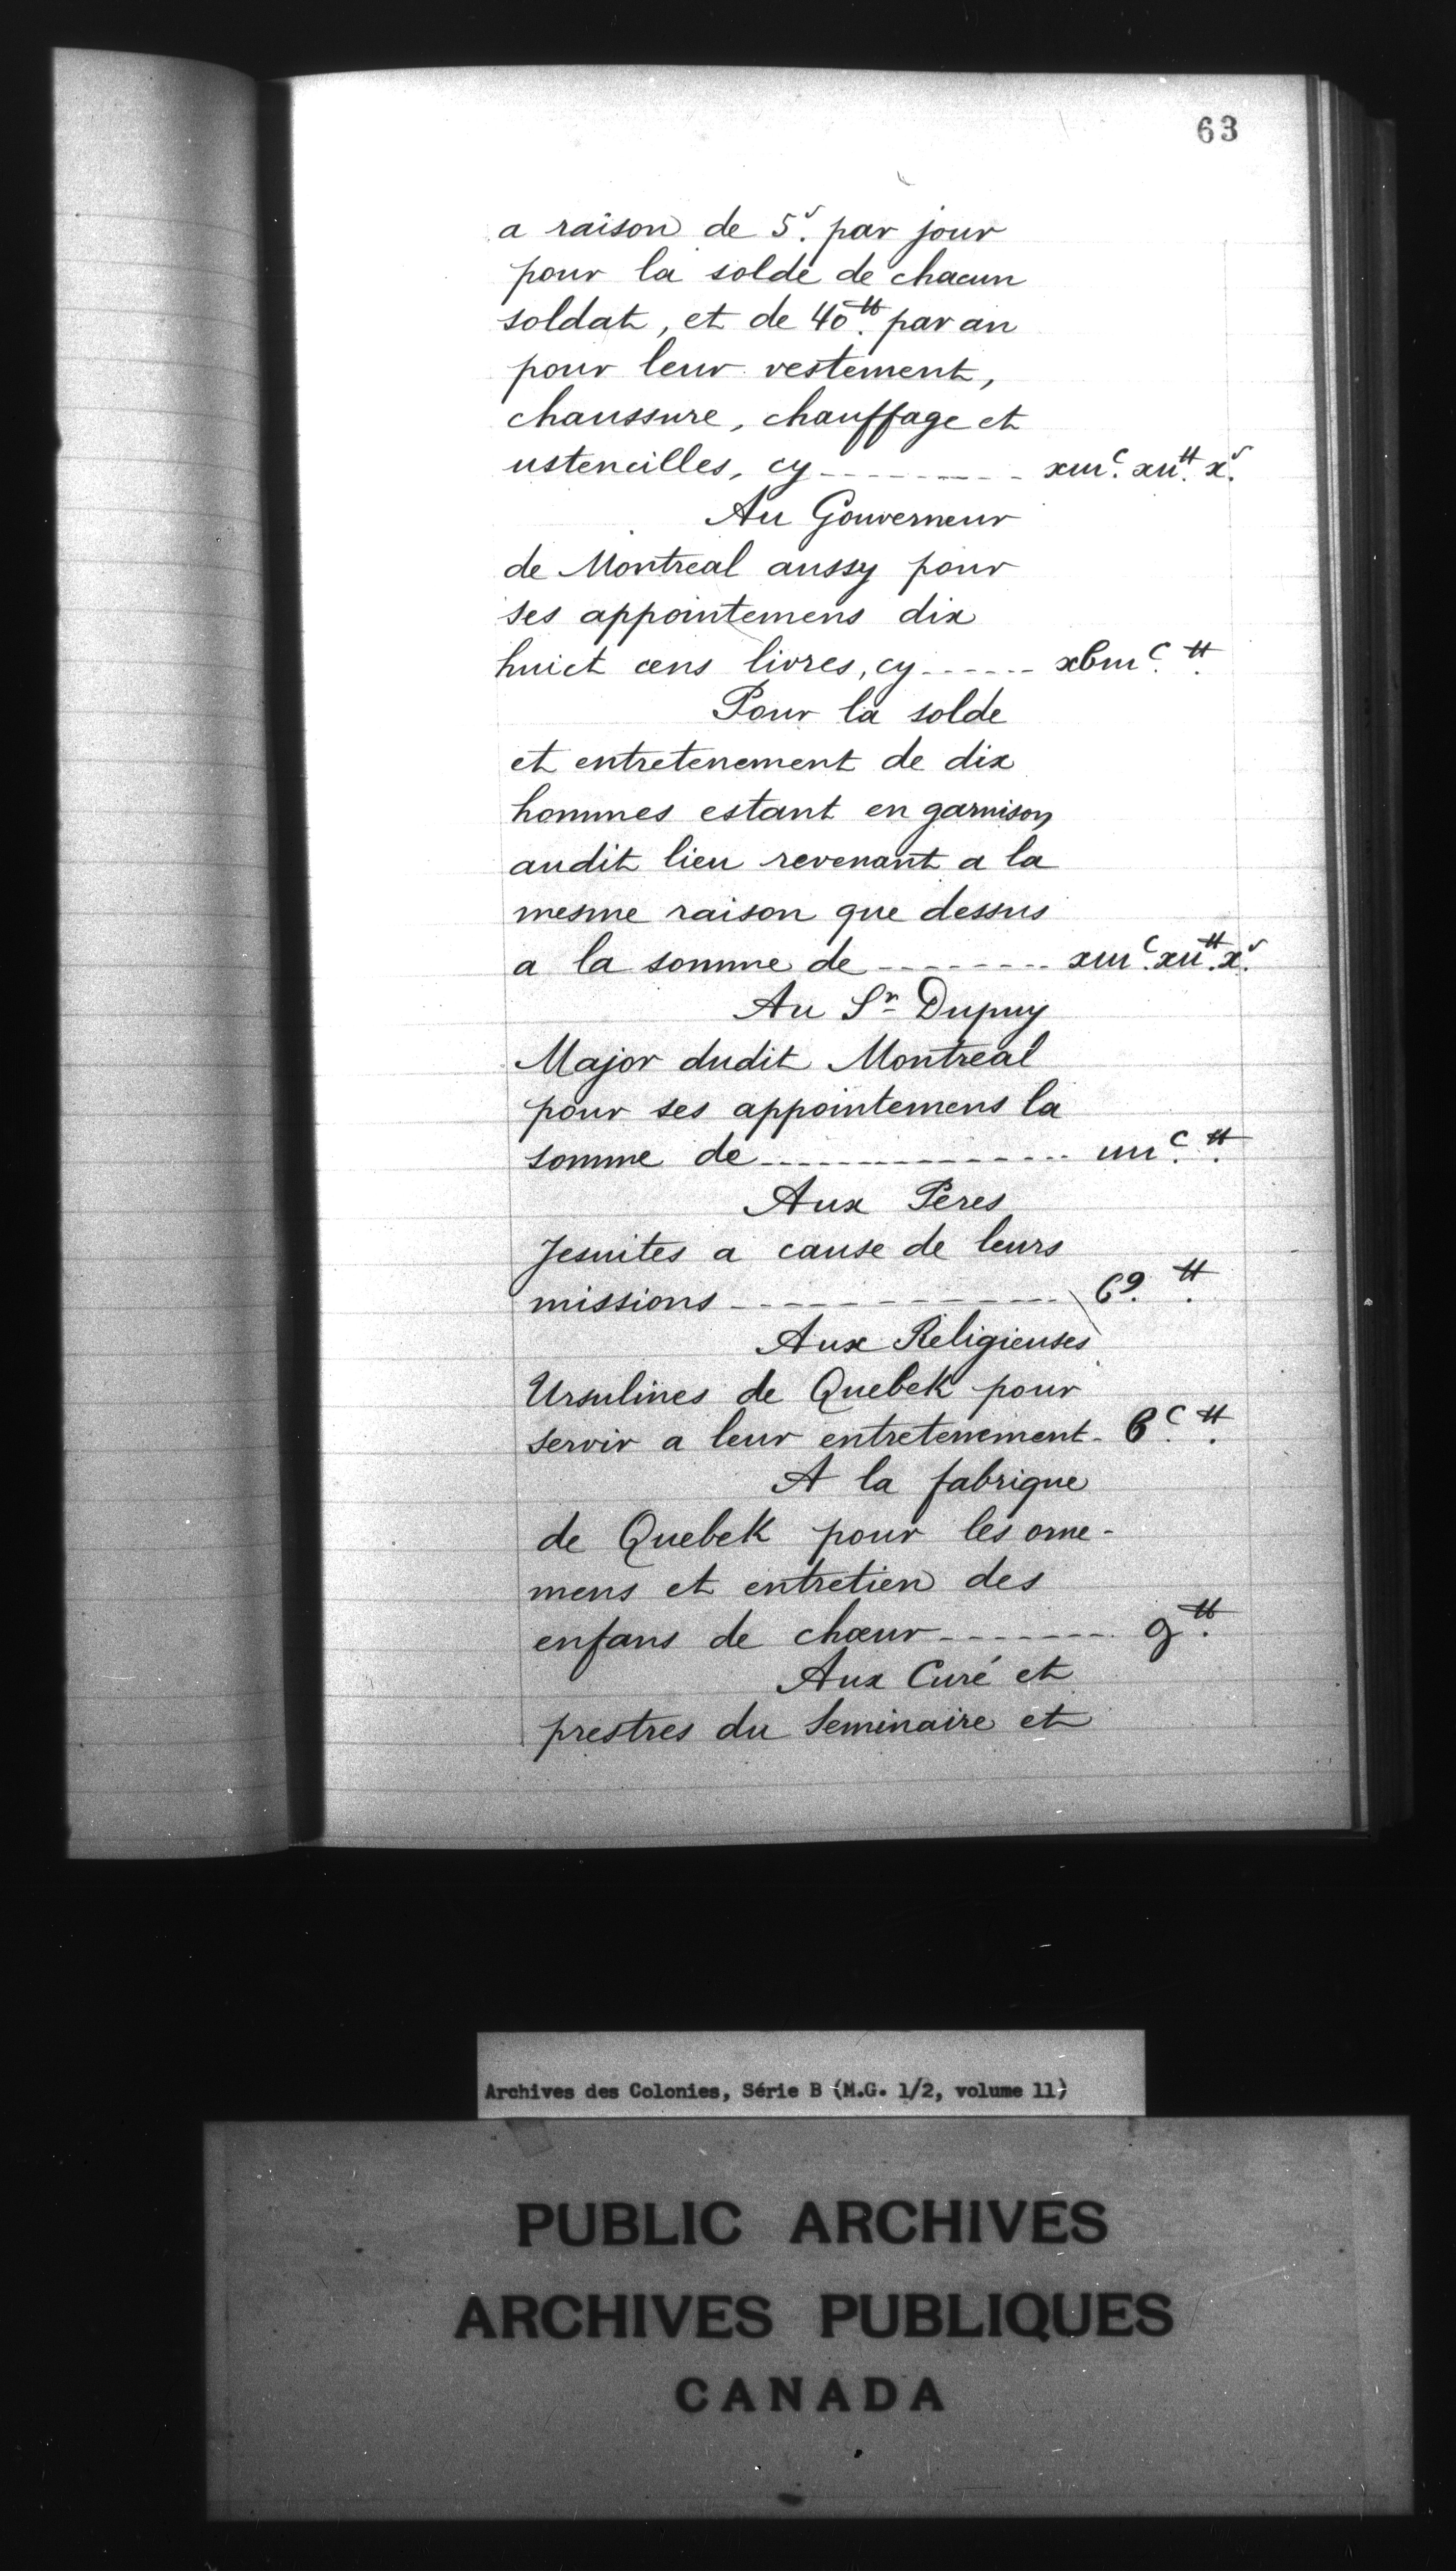 63
a raison de 5ˢ. par jour
pour la solde de chacun
soldat, et de 40ᵗᵗ. par an
pour leur vestement,
chaussure, chauffage et
ustencilles, cy ---------- xiiiᶜ. xiiᵗᵗ. xˢ.
Au Gouverneur
de Montreal aussy pour
ses appointemens dix
huict cens livres, cy ------ xbiiiᶜ. ᵗᵗ.
Pour la solde
et entretenement de dix
hommes estant en garnison
audit lieu revenant a la
mesme raison que dessus
a la somme de -------- xiiiᶜ. xiiᵗᵗ. xˢ.
Au Sʳ Dupuy
Major dudit Montreal
pour ses appointemens la
somme de -------------- iiiᶜ. ᵗᵗ.
Aux Peres
Jesuites a cause de leurs
missions --------------
Aux Religieuses
Ursulines de Quebek pour
servir a leur entretenement - bᶜ. ᵗᵗ.
A la fabrique
de Quebek pour les orne-
mens et entretien des
enfans de chœur --------
Aux Curé et
prestres du Seminaire et
Archives des Colonies, Série B (M.G. 1/2, volume 11)
PUBLIC ARCHIVES
ARCHIVES PUBLIQUES
CANADA